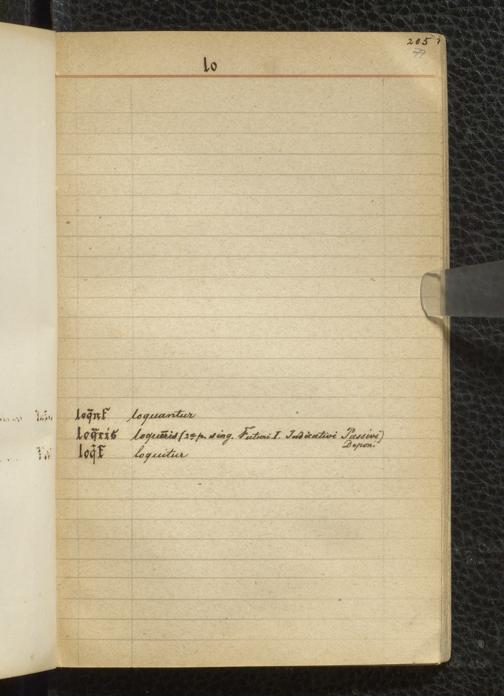 205
lo
loq̃nt loquantur
loq̃ris loqueris (2e p. sing. Futuri I. Indicativi Passivi)
Depon.
loq̃t loquitur